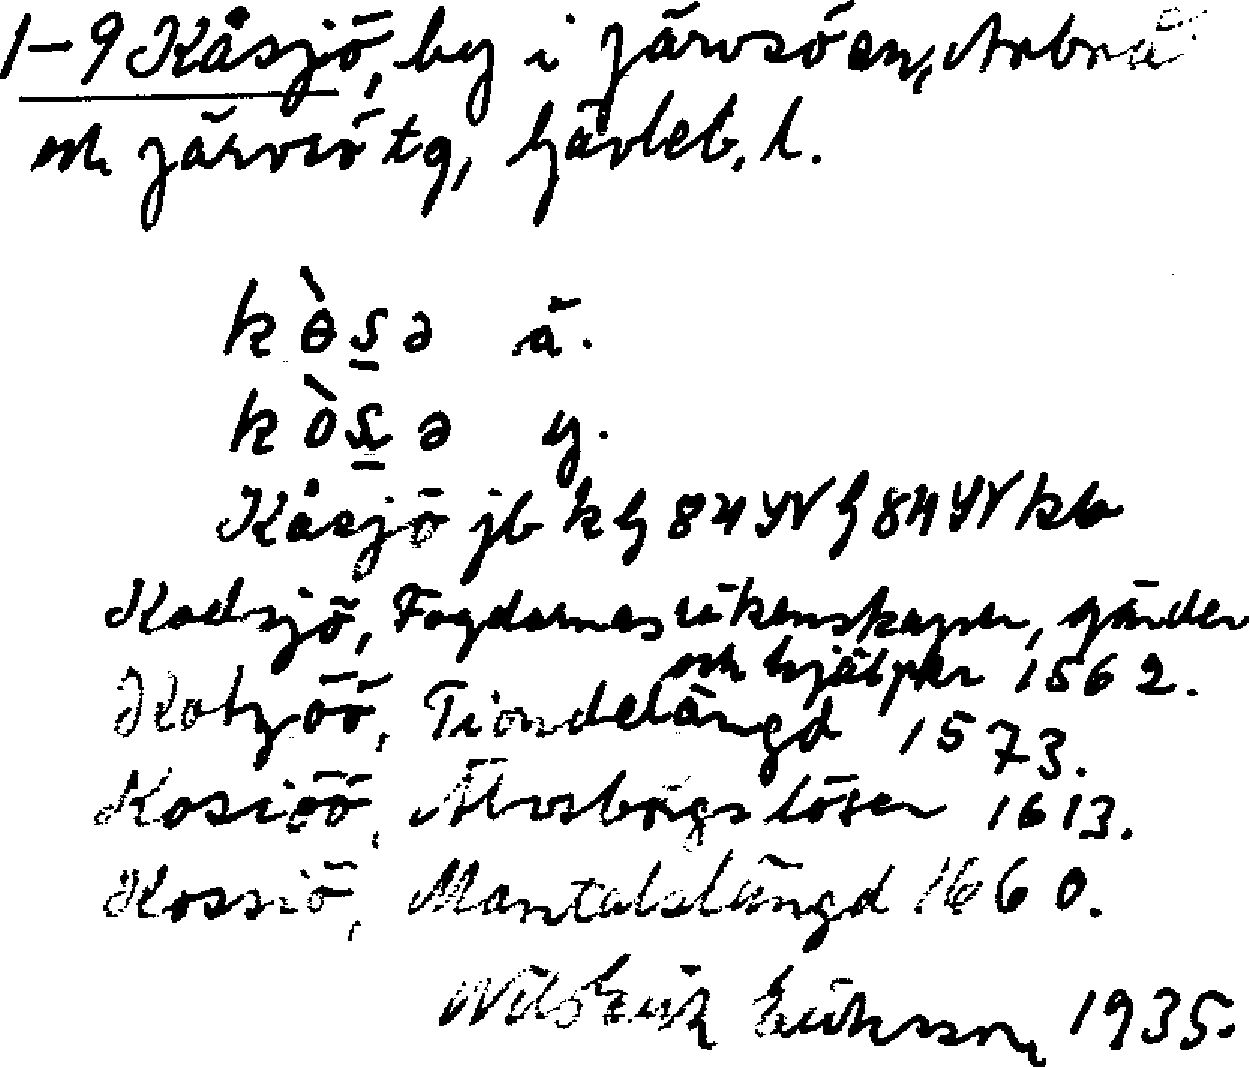 1-9 Kåsjö, by i Järvsö sn, Arbrå
och Järvsö tg, Gävleb. l.
kɵ̀s̲ə ä.
kòs̲ə y.
Kåsjö jb k g 84 yv g 84 yv kb
Kodsjö, Fogdarnas räkenskaper, gärder
och hjälper 1562.
Kotzöö, Tiondelängd 1573.
Kosiöö, Älvsborgs lösen 1613.
Kossiö, Mantalslängd 1660.
Nils Erik Eriksson, 1935.